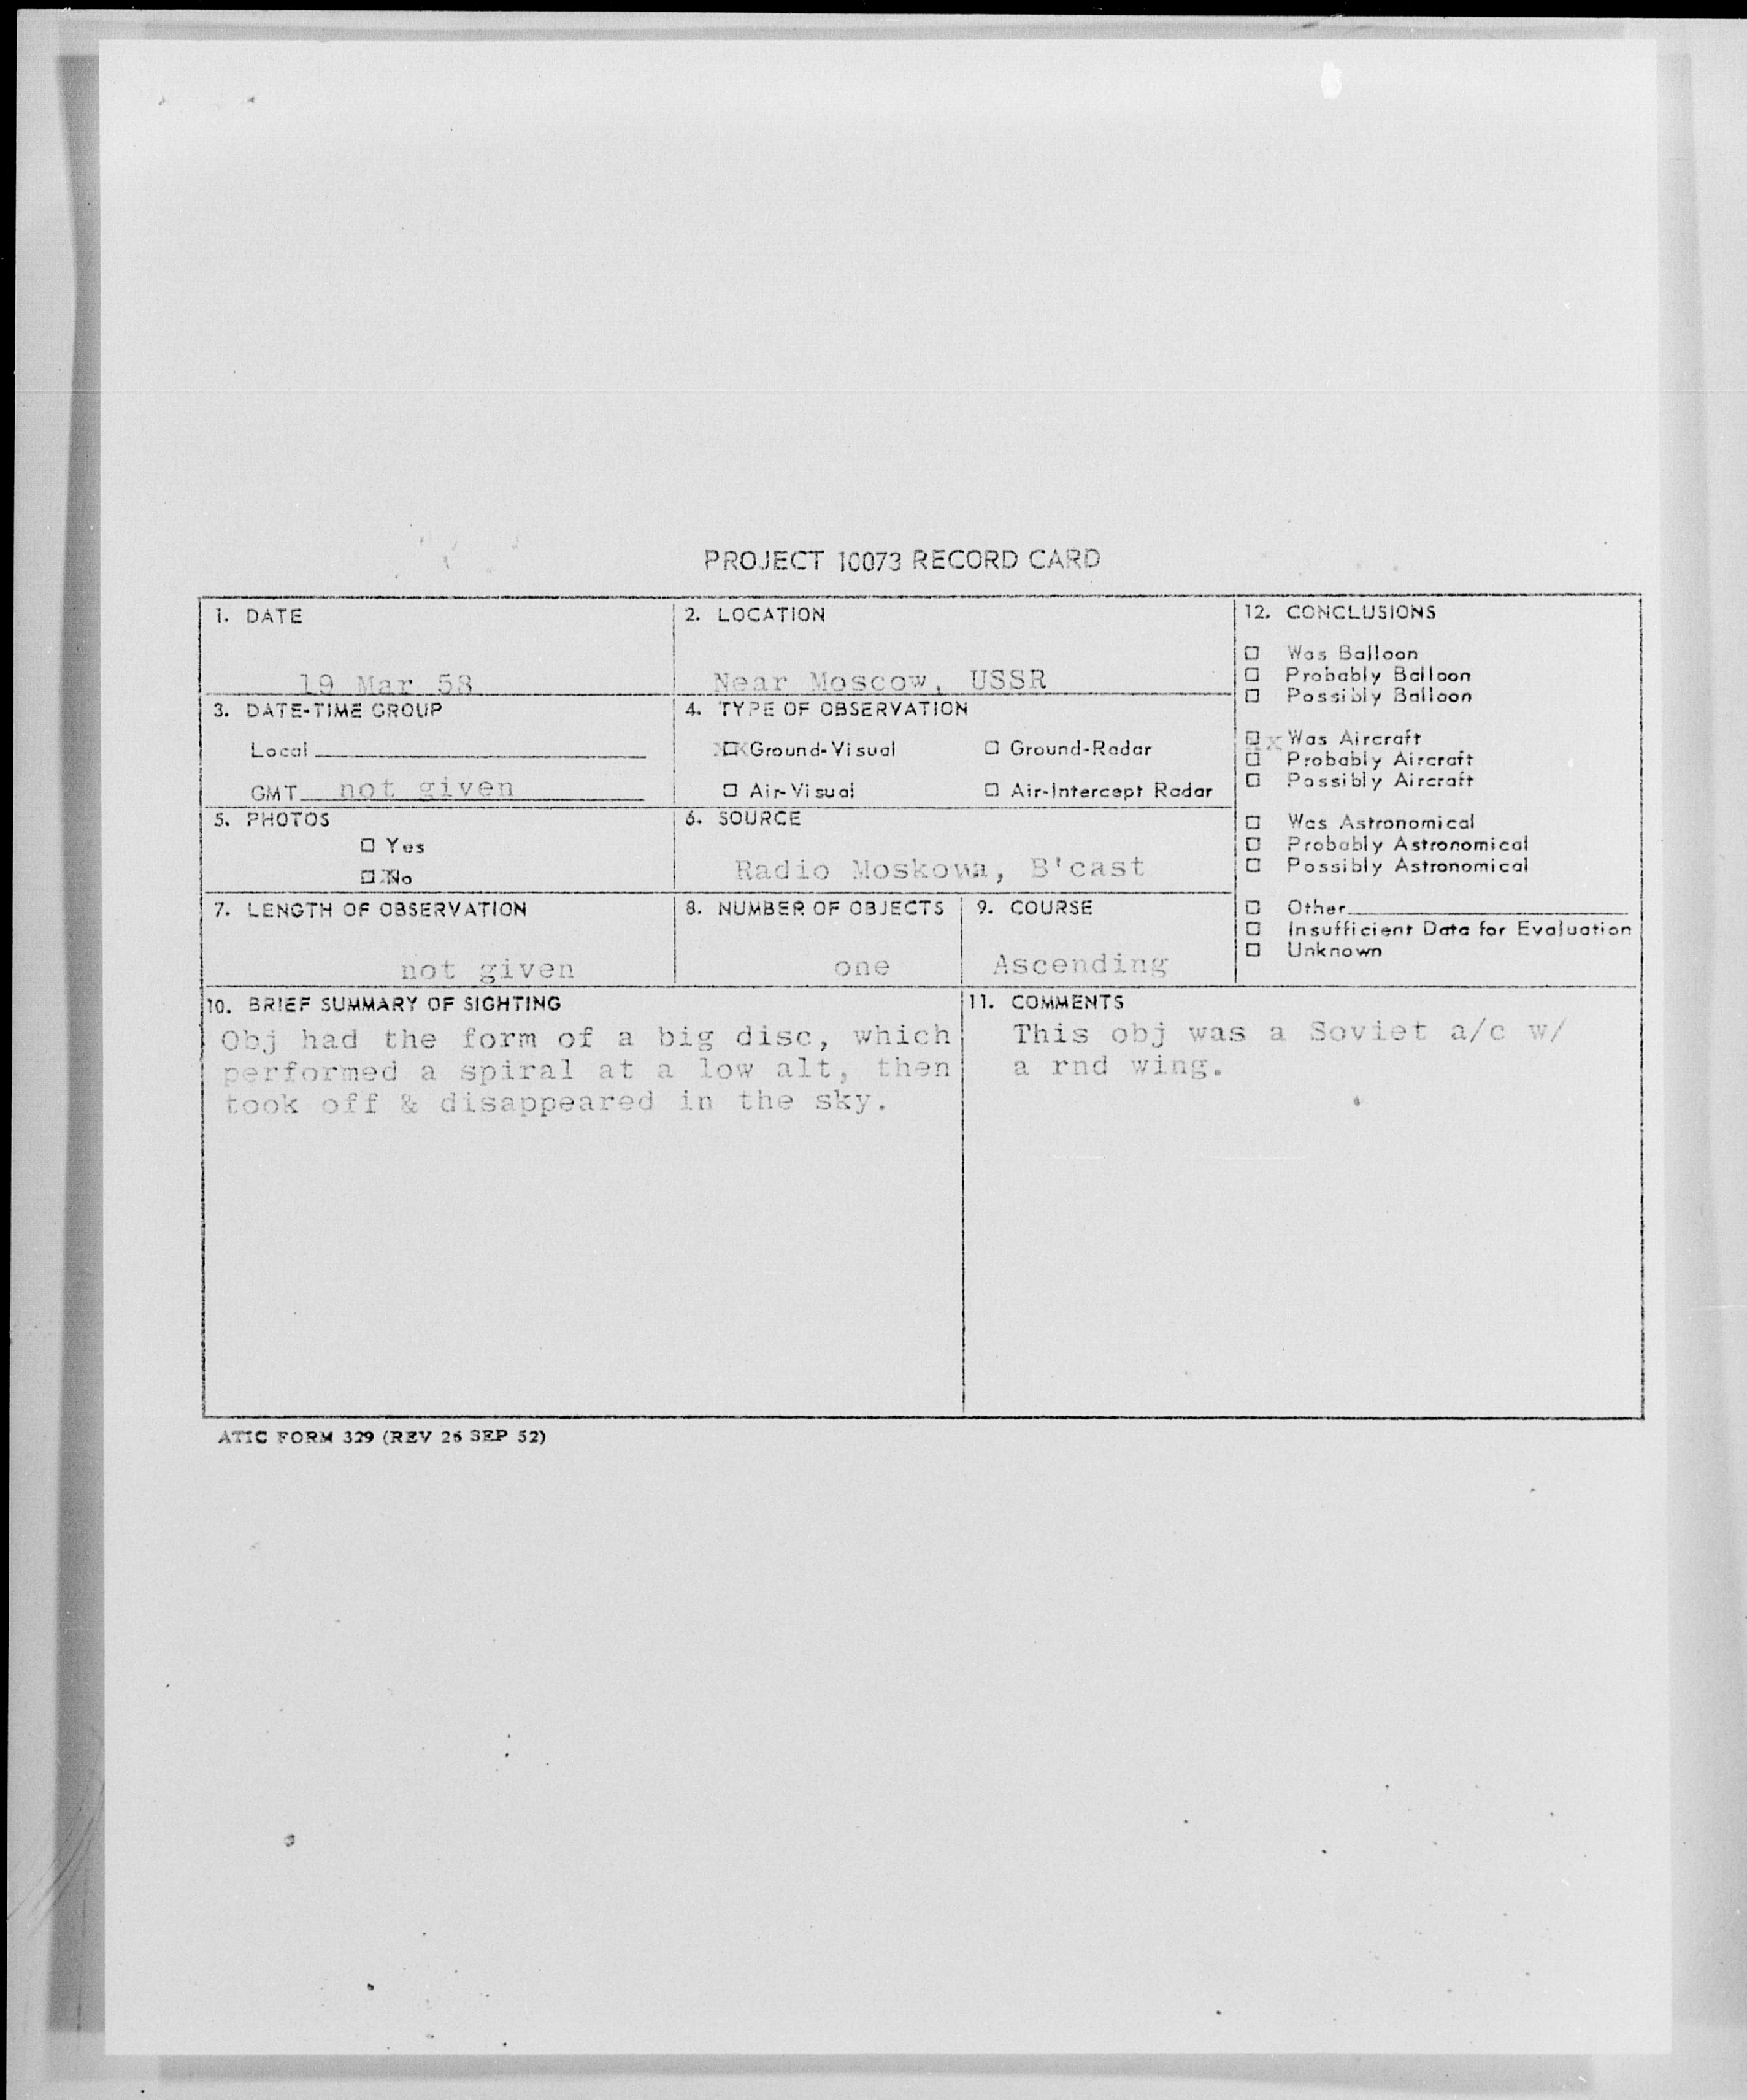 PROJECT 10073 RECORD CARD
1. DATE
19 Mar 58
2. LOCATION
Near Moscow, USSR
3. DATE-TIME GROUP
Local
GMT not given
4. TYPE OF OBSERVATION
XX Ground-Visual ☐ Ground-Radar
☐ Air-Visual ☐ Air-Intercept Radar
5. PHOTOS
☐ Yes
☒ No
6. SOURCE
Radio Moskowa, B'cast
7. LENGTH OF OBSERVATION
not given
8. NUMBER OF OBJECTS
one
9. COURSE
Ascending
12. CONCLUSIONS
☐ Was Balloon
☐ Probably Balloon
☐ Possibly Balloon
☒ Was Aircraft
☐ Probably Aircraft
☐ Possibly Aircraft
☐ Was Astronomical
☐ Probably Astronomical
☐ Possibly Astronomical
☐ Other
☐ Insufficient Data for Evaluation
☐ Unknown
10. BRIEF SUMMARY OF SIGHTING
Obj had the form of a big disc, which
performed a spiral at a low alt, then
took off & disappeared in the sky.
11. COMMENTS
This obj was a Soviet a/c w/
a rnd wing.
ATIC FORM 329 (REV 26 SEP 52)